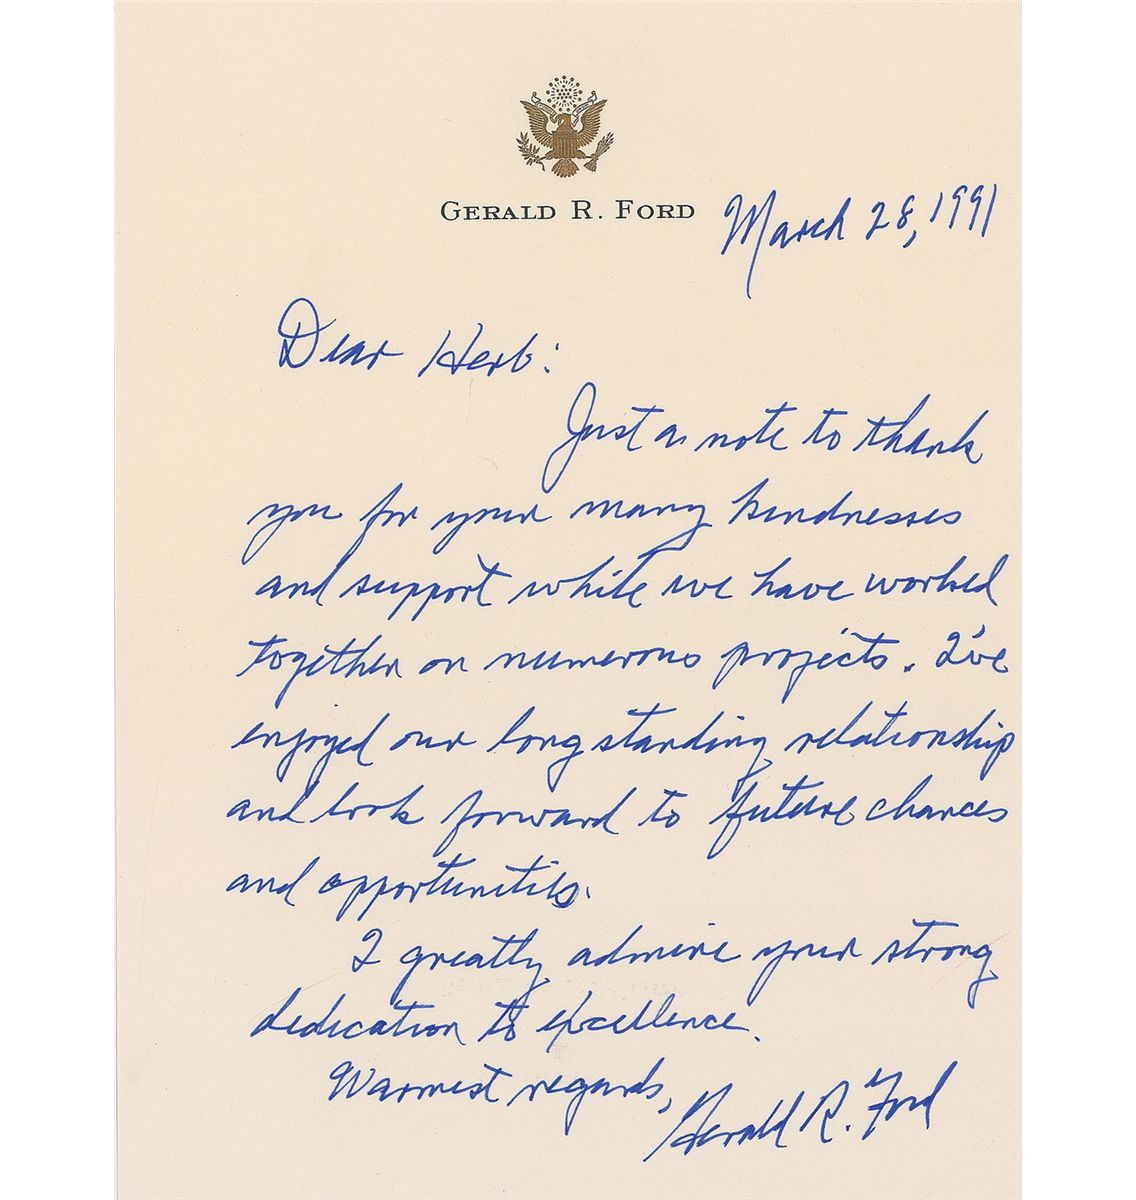 GERALD R. FORD
March 28, 1991
Dear Herb:
Just a note to thank
you for your many kindnesses
and support while we have worked
together on numerous projects. I've
enjoyed our long standing relationship
and look forward to future chances
and opportunities.
I greatly admire your strong
dedication to excellence.
Warmest regards,
Gerald R. Ford